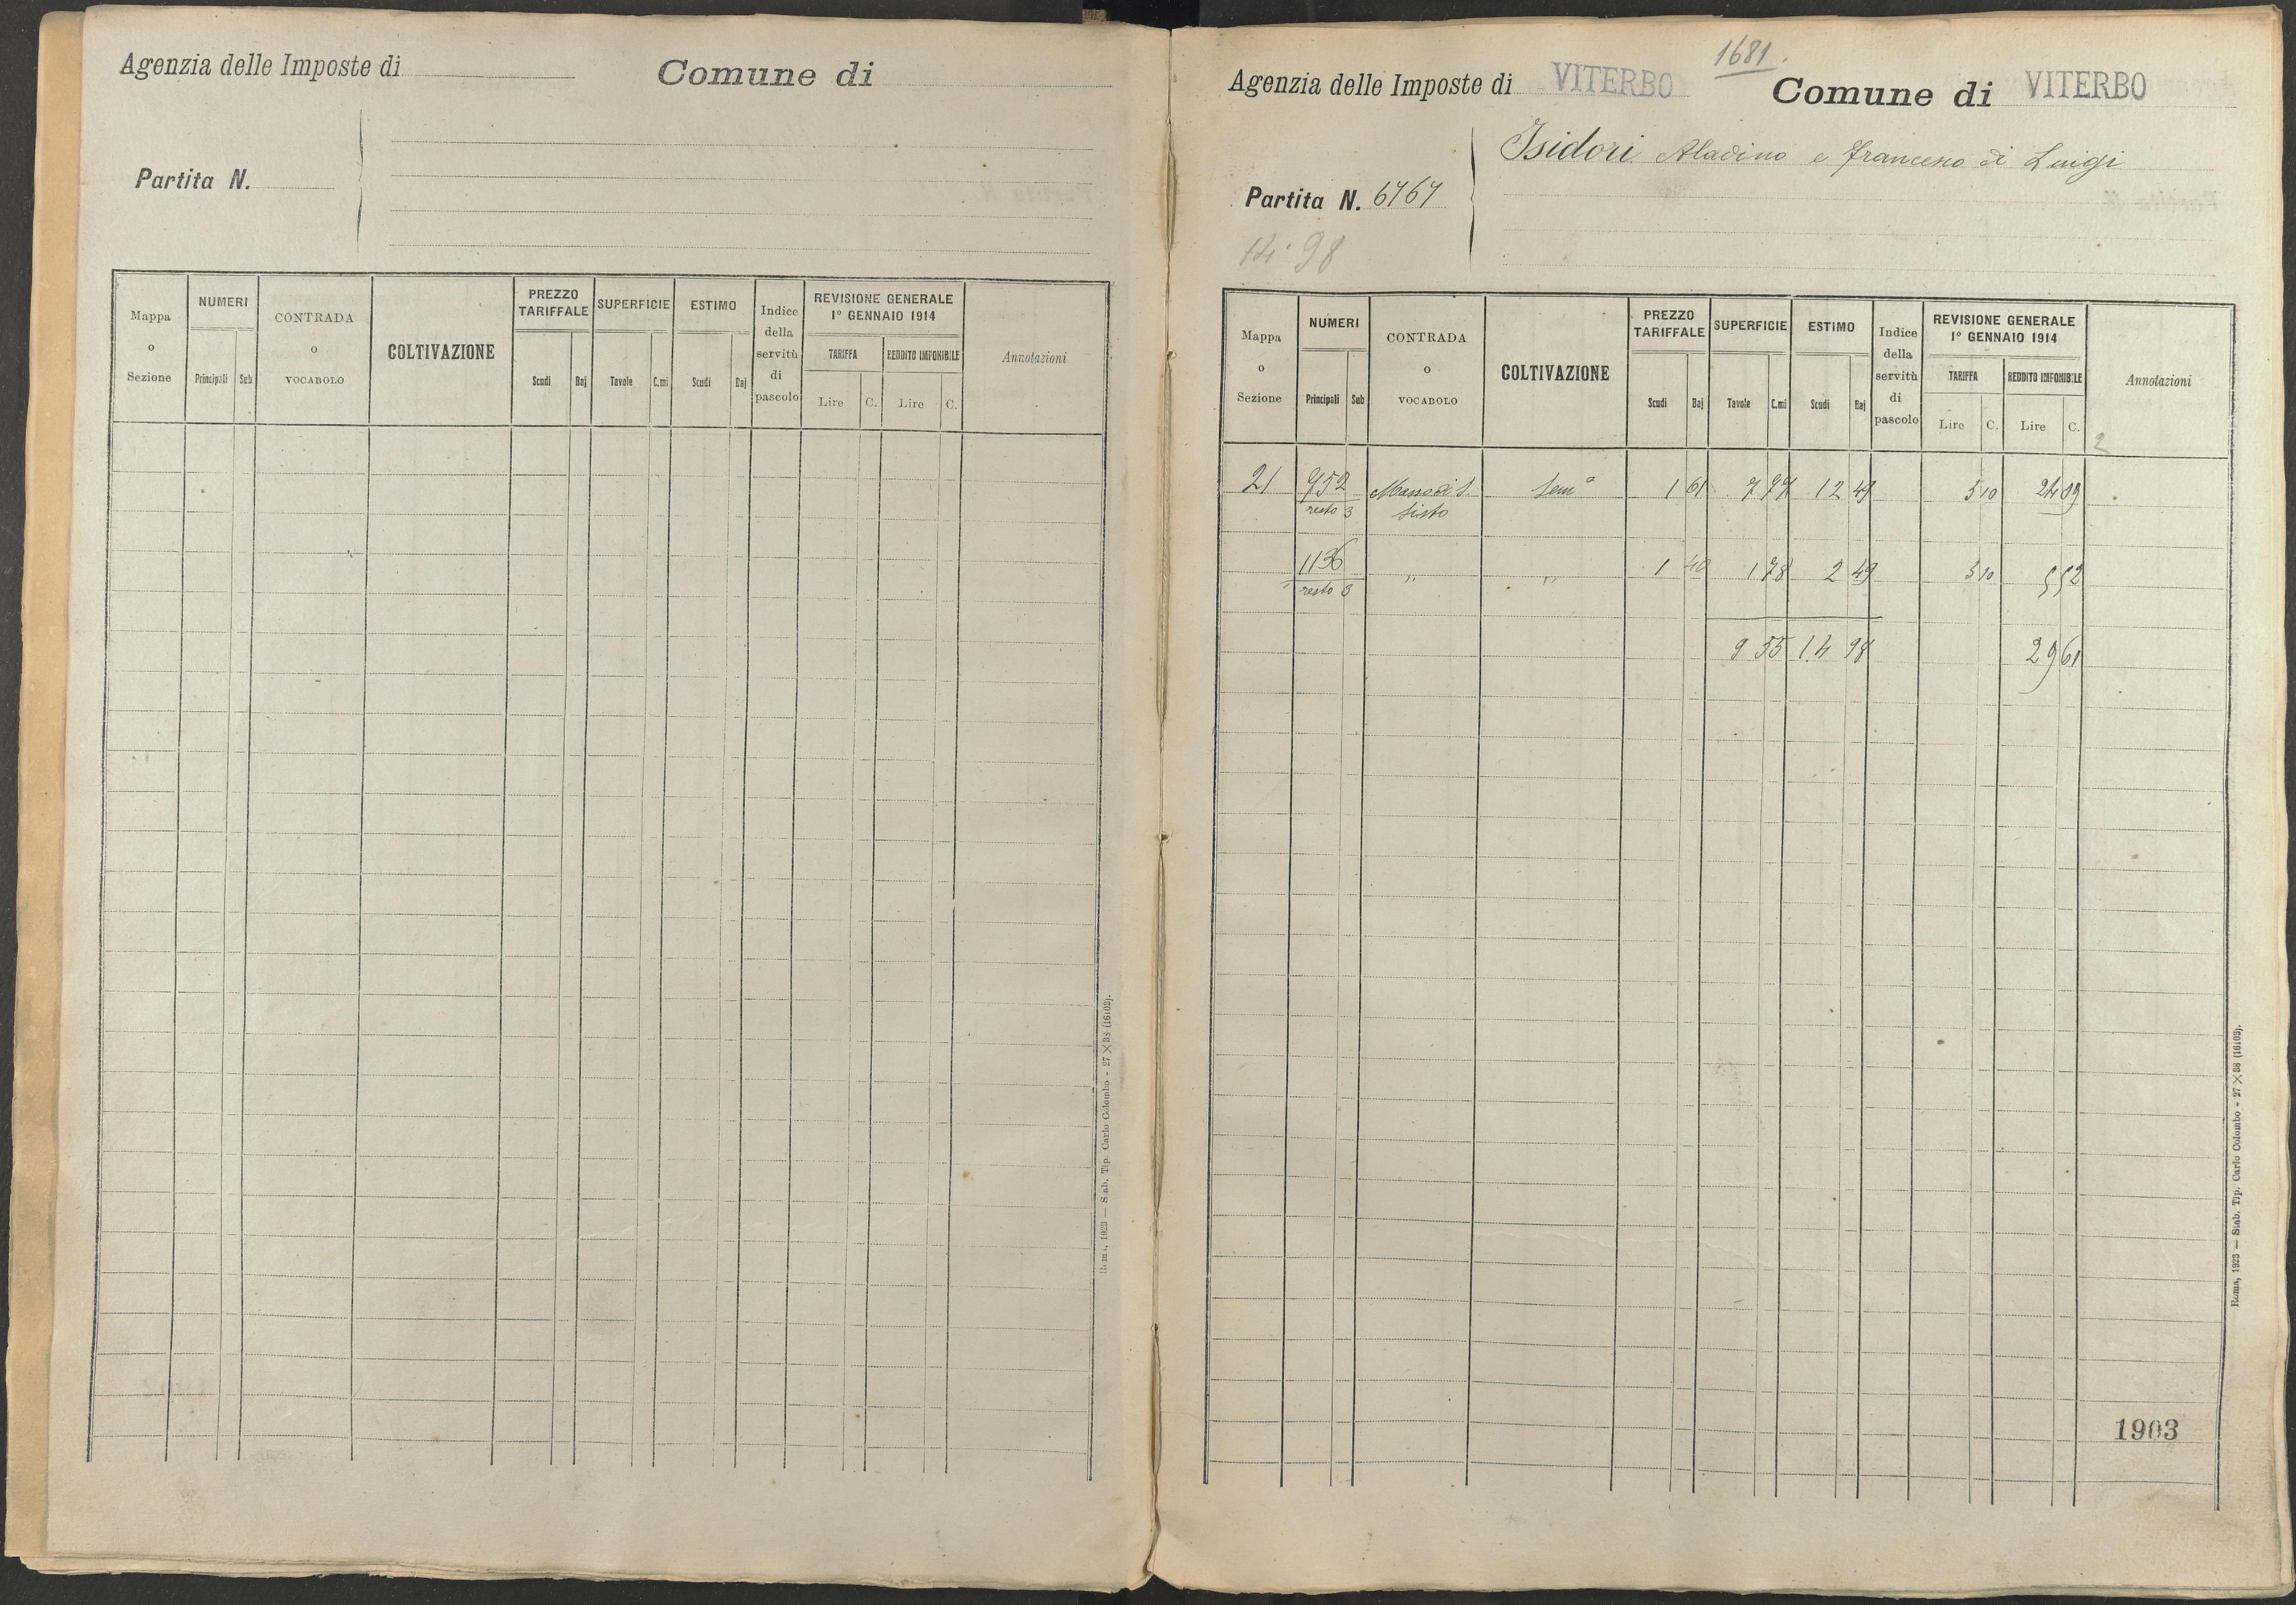 Agenzia delle Imposte di
Comune di
Partita N.
Mappa o Sezione
NUMERI
Principali Sub
CONTRADA o VOCABOLO
COLTIVAZIONE
PREZZO TARIFFALE
Scudi Baj
SUPERFICIE
Tavole C.mi
ESTIMO
Scudi Baj
Indice della servitù di pascolo
REVISIONE GENERALE
1° GENNAIO 1914
TARIFFA
Lire C.
REDDITO IMPONIBILE
Lire C.
Annotazioni
Roma, 1923 — Stab. Tip. Carlo Colombo - 27 × 38 (16103).
1681.
Agenzia delle Imposte di VITERBO
Comune di VITERBO
Isidori Aladino e Francesco di Luigi
Partita N. 6767
14.98
Mappa o Sezione
NUMERI
Principali Sub
CONTRADA o VOCABOLO
COLTIVAZIONE
PREZZO TARIFFALE
Scudi Baj
SUPERFICIE
Tavole C.mi
ESTIMO
Scudi Baj
Indice della servitù di pascolo
REVISIONE GENERALE
1° GENNAIO 1914
TARIFFA
Lire C.
REDDITO IMPONIBILE
Lire C.
Annotazioni
2
21 952 di S. Sem° 1 61 7 77 12 49 5 10 24 09
resto 3 Sisto
1136 " " 1 40 1 78 2 49 5 10 5 52
resto 3
9 55 14 98 29 61
1903
Roma, 1923 — Stab. Tip. Carlo Colombo - 27 × 38 (16103).